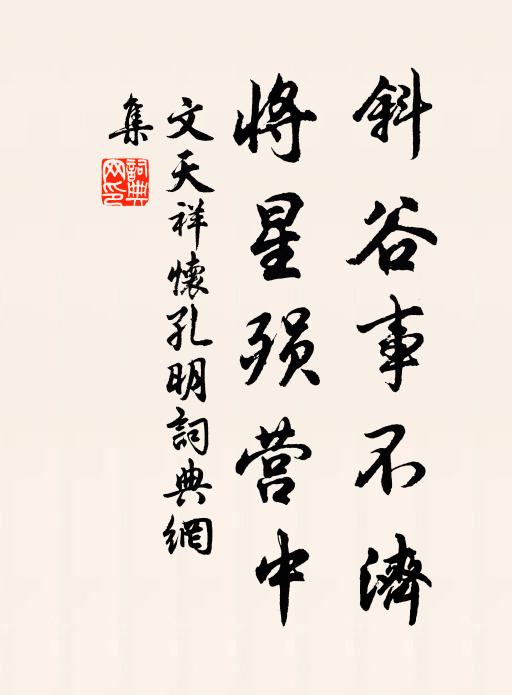 斜谷事不濟
将星殞营中
文天祥懷孔明詞典網
集
詞典
网印